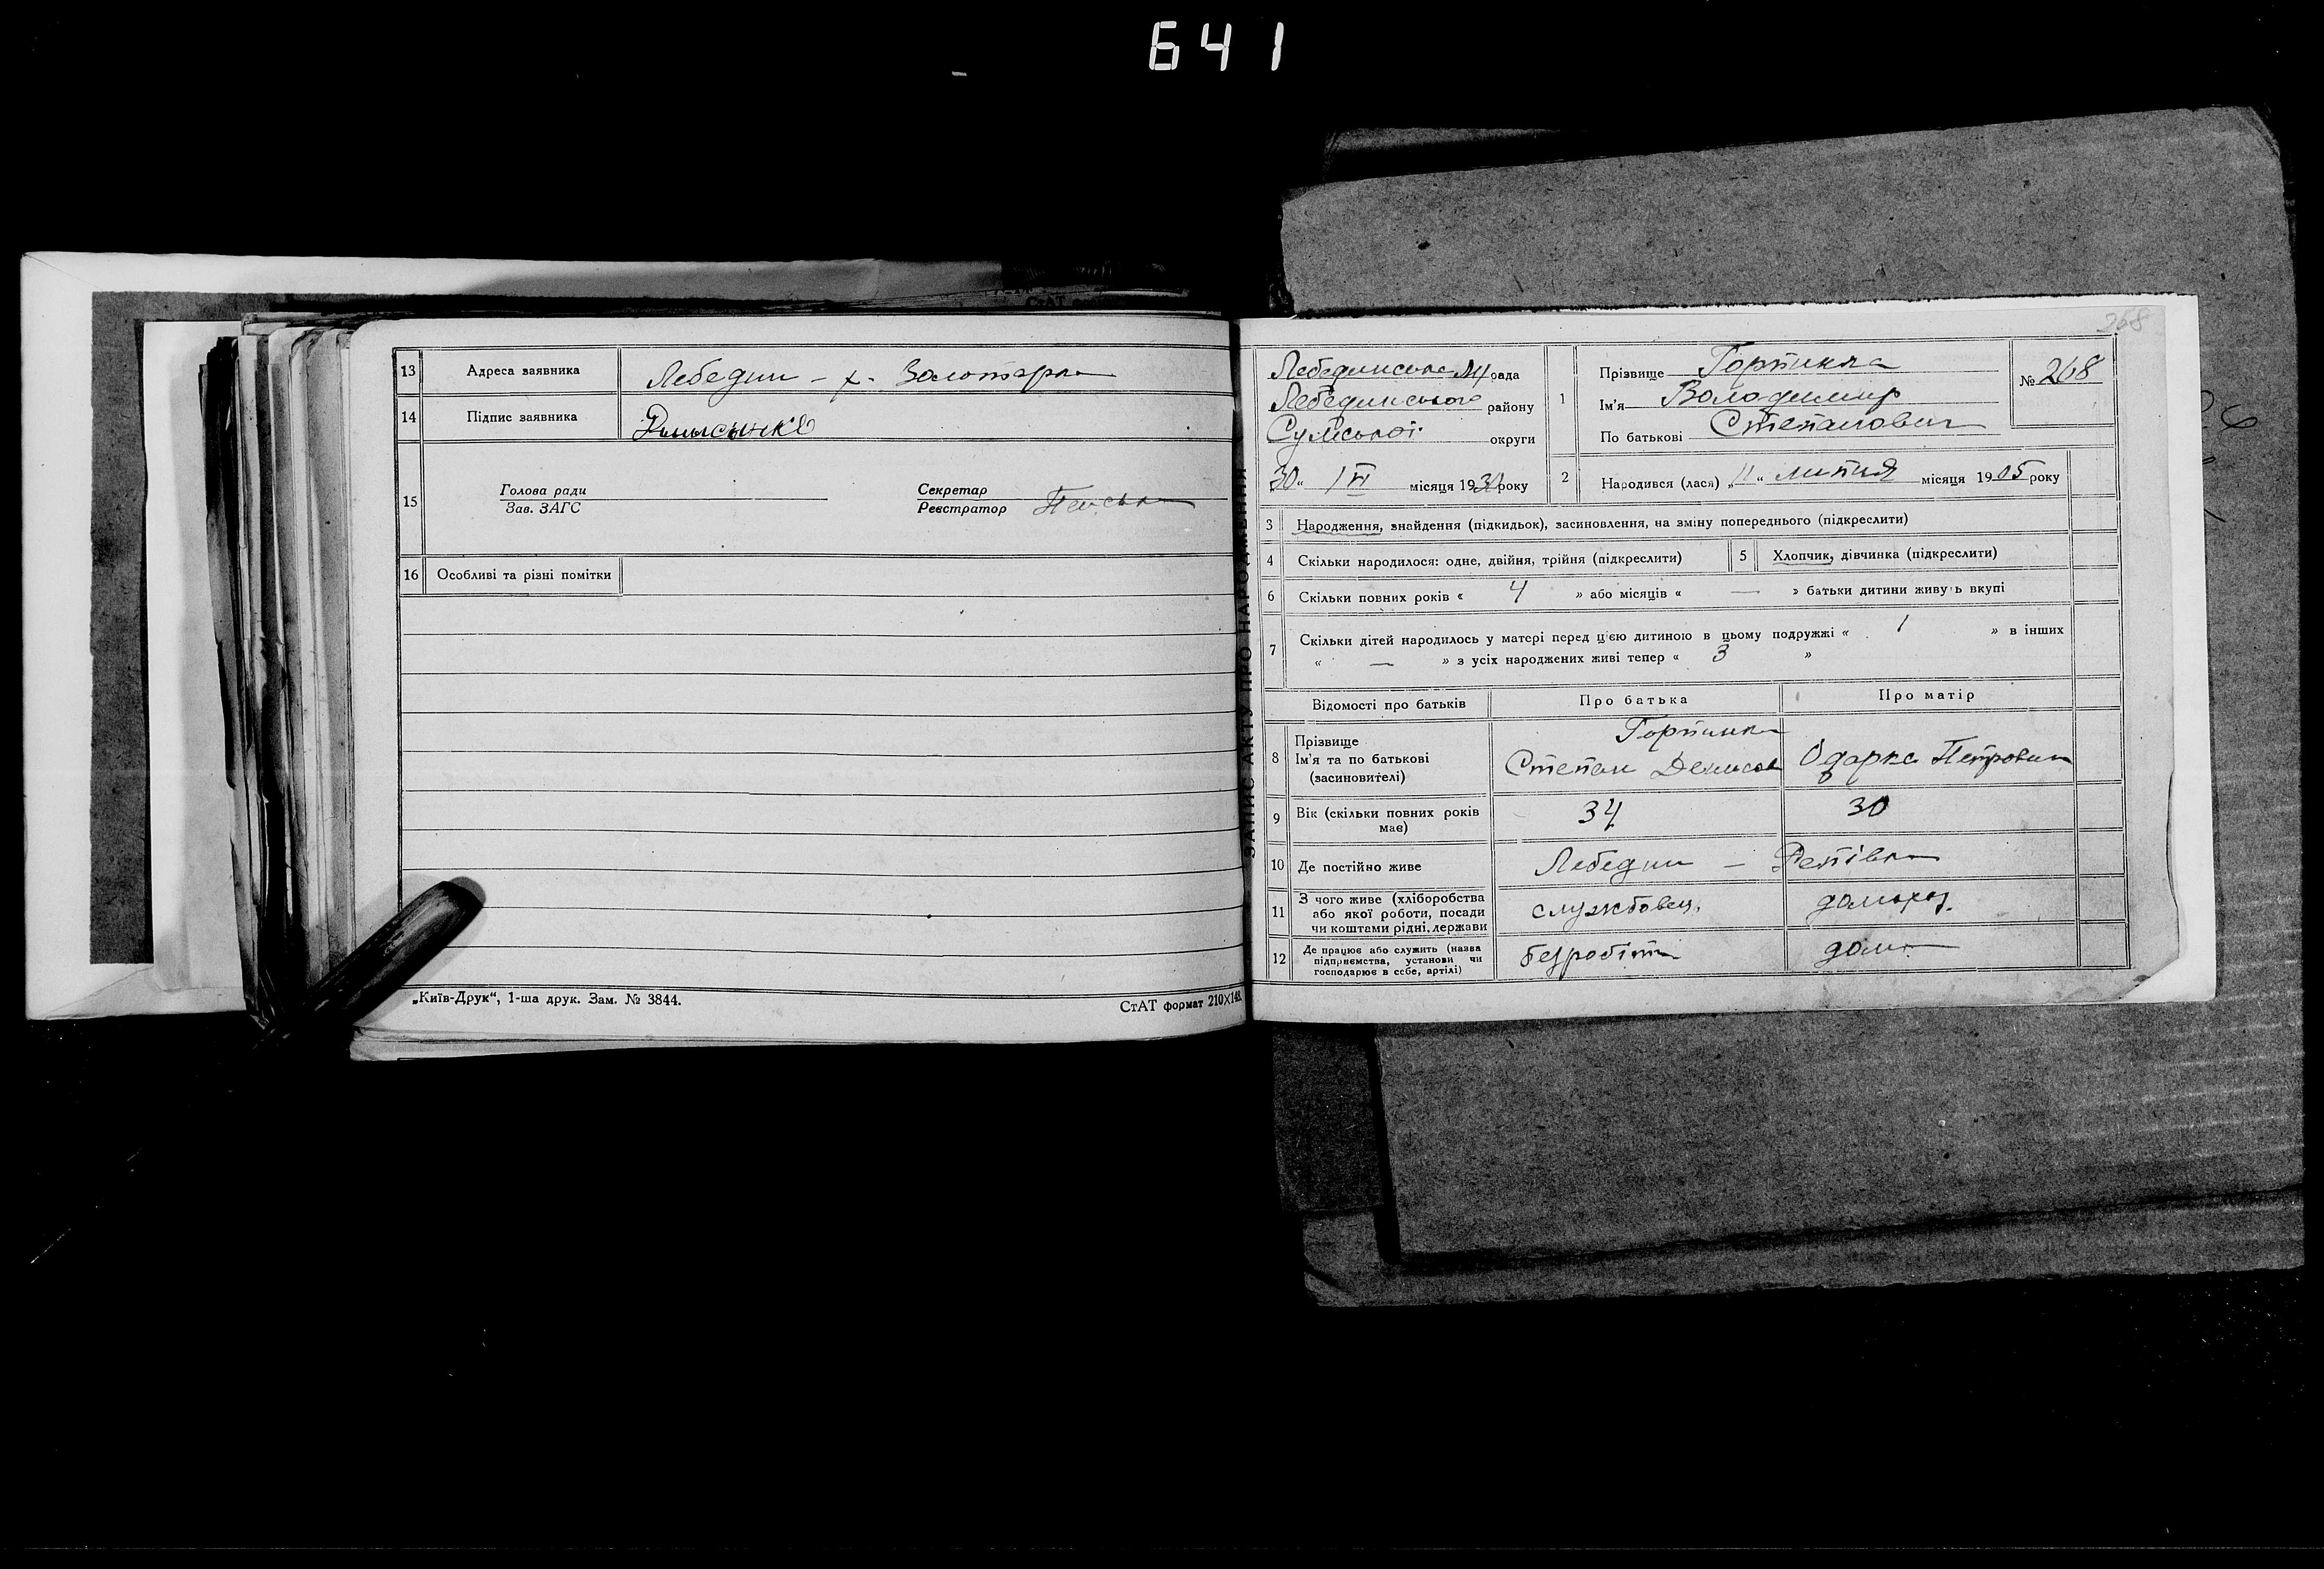 641
13 Адреса заявника Лебедин - х. Золотарка
14 Підпис заявника
15 Голова ради
Зав. ЗАГС
Секретар
Реєстратор
16 Особливі та різні помітки
„Київ-Друк“, 1-ша друк. Зам. № 3844.
СтАТ формат 210X148
ЗАПИС АКТУ ПРО НАРОДЖЕННЯ
268
Лебединська М рада
Лебединського району
Сумської округи
„30“ місяця 1930 року
1 Прізвище Горпинка
Ім'я Володимир
По батькові Степанович
№ 268
2 Народився (лася) „11“ липня місяця 1905 року
3 Народження, знайдення (підкидьок), засиновлення, на зміну попереднього (підкреслити)
4 Скільки народилося: одне, двійня, трійня (підкреслити) 5 Хлопчик, дівчинка (підкреслити)
6 Скільки повних років « 4 » або місяців « — » батьки дитини живуть вкупі
7 Скільки дітей народилось у матері перед цією дитиною в цьому подружжі « 1 » в інших
« — » з усіх народжених живі тепер « 3 »
Відомості про батьків Про батька Про матір
8 Прізвище
Ім'я та по батькові
(засиновителі)
Горпинка
Степан Денисов Одарка Петровна
9 Вік (скільки повних років має) 34 30
10 Де постійно живе Лебедин —
11 З чого живе (хліборобства
або якої роботи, посади
чи коштами рідні, держави
службовец. домохоз.
12 Де працює або служить (назва
підприємства, установи чи
господарює в себе, артілі)
безробітн дома